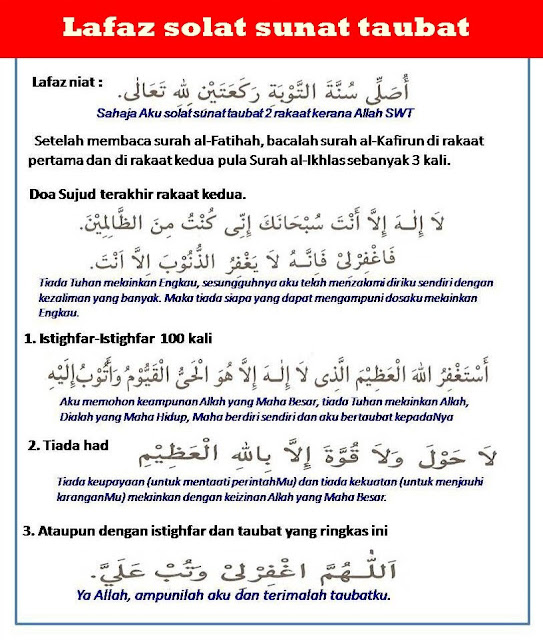 Lafaz solat sunat taubat
Lafaz niat : أُصَلِّى سُنَّةَ التَّوْبَةِ رَكَعَتَيْنِ لِلّٰهِ تَعَالَى.
Sahaja Aku solat sunat taubat 2 rakaat kerana Allah SWT
Setelah membaca surah al-Fatihah, bacalah surah al-Kafirun di rakaat
pertama dan di rakaat kedua pula Surah al-Ikhlas sebanyak 3 kali.
Doa Sujud terakhir rakaat kedua.
لَا إِلٰـهَ إِلَّا أَنْتَ سُبْحَانَكَ إِنِّى كُنْتُ مِنَ الظَّالِمِيْنَ.
فَاغْفِرْلِىْ فَاِنَّـهُ لَا يَغْفِرُ الذُّنُوْبَ اِلَّا اَنْتَ.
Tiada Tuhan melainkan Engkau, sesungguhnya aku telah menzalami diriku sendiri dengan
kezaliman yang banyak. Maka tiada siapa yang dapat mengampuni dosaku melainkan
Engkau.
1. Istighfar-Istighfar 100 kali
أَسْتَغْفِرُ اللهَ الْعَظِيْمَ الَّذِى لَا إِلٰـهَ إِلَّا هُوَ الْحَىُّ الْقَيُّوْمُ وَأَتُوْبُ إِلَيْهِ
Aku memohon keampunan Allah yang Maha Besar, tiada Tuhan melainkan Allah,
Dialah yang Maha Hidup, Maha berdiri sendiri dan aku bertaubat kepadaNya
2. Tiada had لَا حَوْلَ وَلَا قُوَّةَ إِلَّا بِاللهِ الْعَظِيْمِ
Tiada keupayaan (untuk mentaati perintahMu) dan tiada kekuatan (untuk menjauhi
laranganMu) melainkan dengan keizinan Allah yang Maha Besar.
3. Ataupun dengan istighfar dan taubat yang ringkas ini
اَللّٰهُمَّ اغْفِرْلِىْ وَتُبْ عَلَيَّ.
Ya Allah, ampunilah aku dan terimalah taubatku.